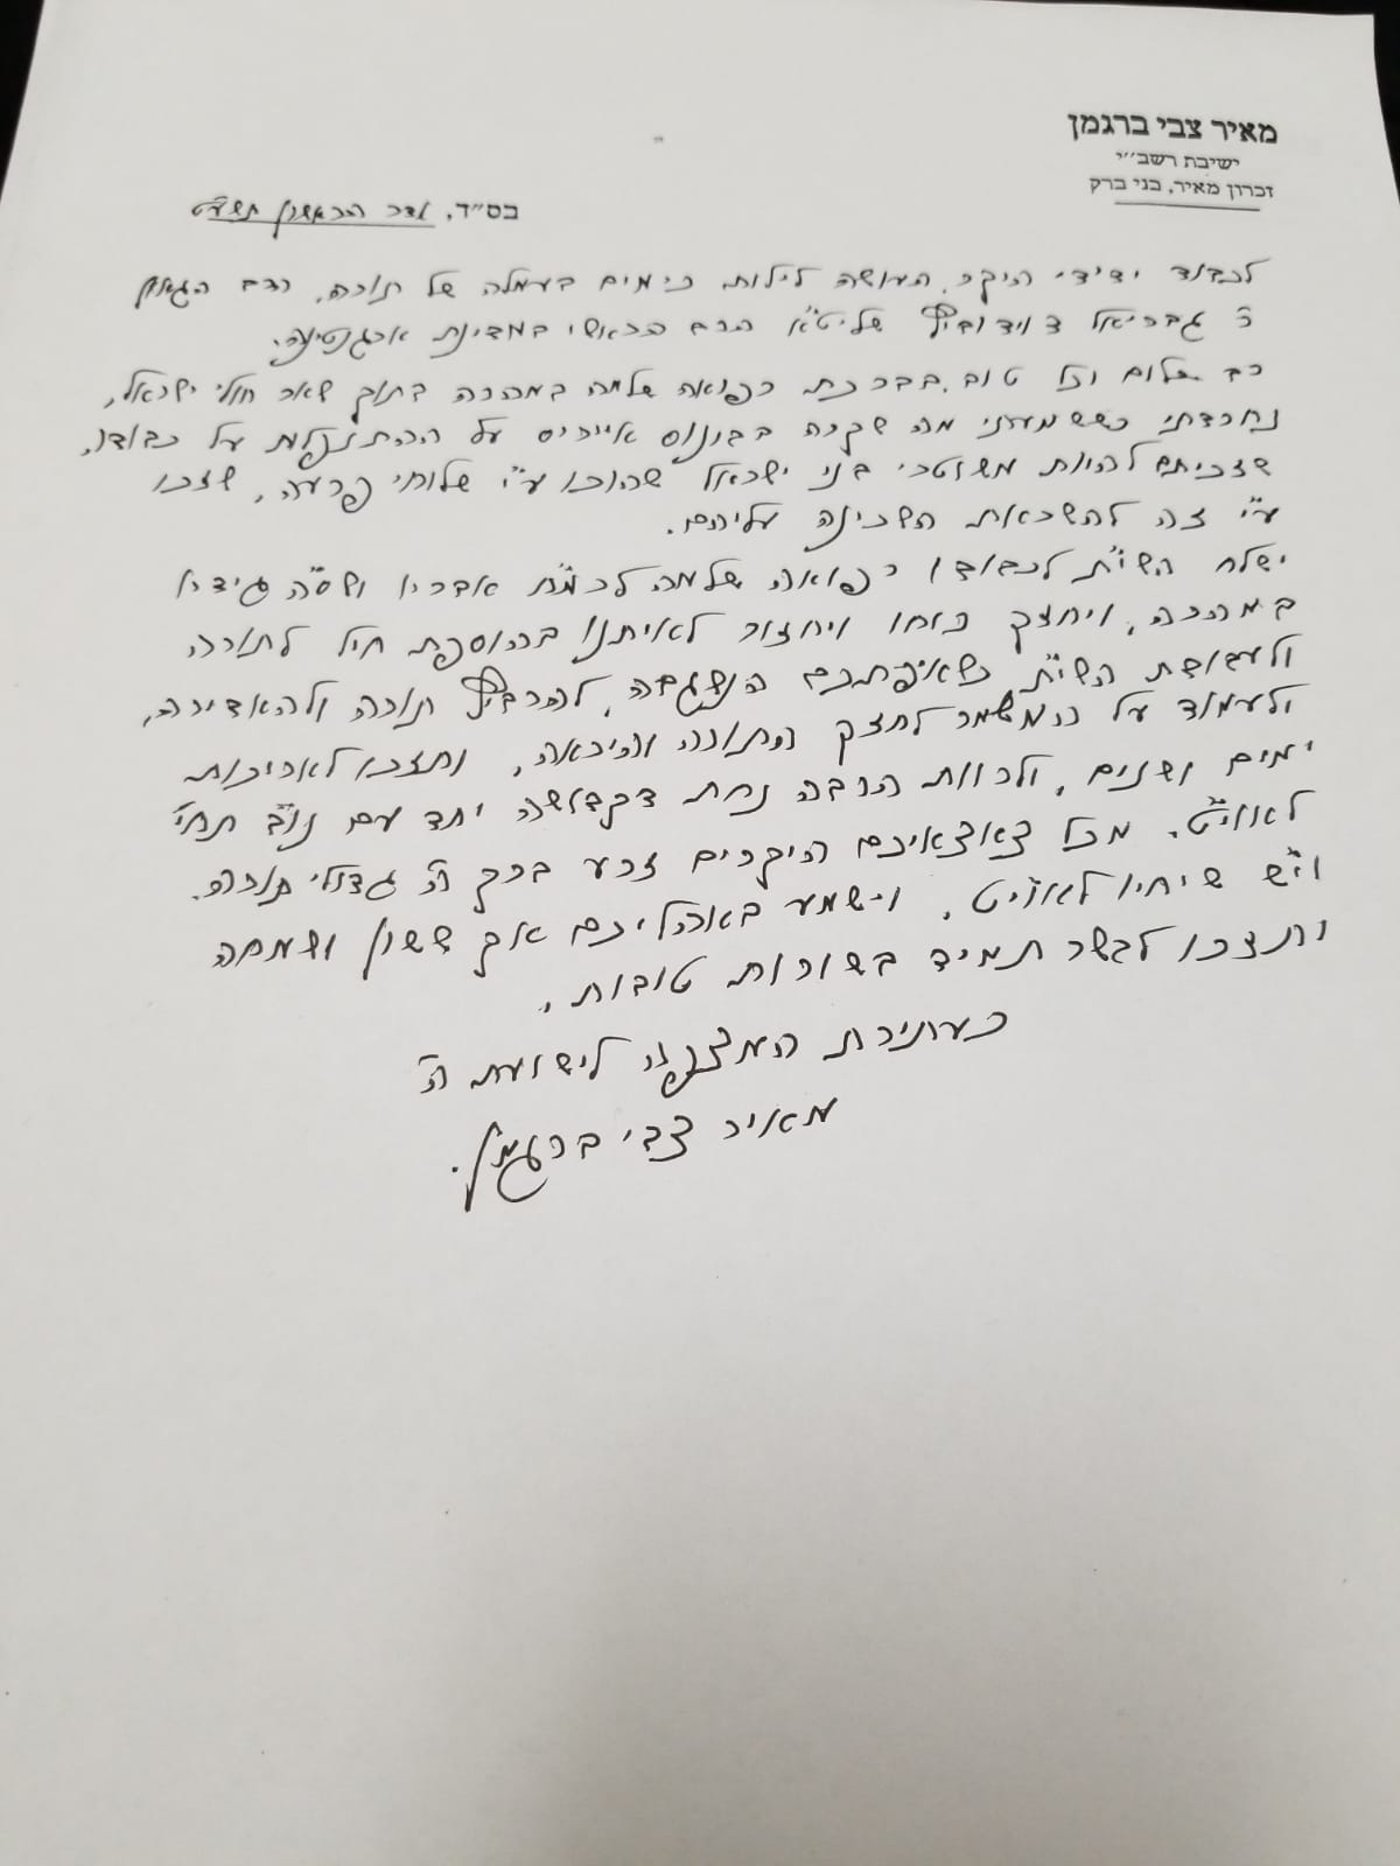 מאיר צבי ברגמן
ישיבת רשב''י
זכרון מאיר, בני ברק
בס"ד, אדר הראשון תשע"ט
לכבוד ידידי היקר, העושה לילות כימים בעמלה של תורה, הרב הגאון
ר' גבריאל דוידוביץ שליט"א הרב הראשי במדינת ארגנטינה.
רב שלום וכל טוב, בברכת רפואה שלמה במהרה בתוך שאר חולי ישראל,
נחרדתי כששמעתי מה שקרה בבונוס איירס על ההתנפלות על כבודו,
שזכיתם להיות משוטרי בני ישראל שהוכו ע"י שלוחי פרעה, שזכו
ע"י זה להשראת השכינה עליהם.
ישלח השי"ת לכבודו רפואה שלמה לרמ"ח אבריו ושס"ה גידיו
במהרה, ויחזק כוחו ויחזור לאיתנו בהוספת חיל לתורה
ולעבודת השי"ת כשאיפתכם הנשגבה, להרביץ תורה ולהאדירה,
ולעמוד על המשמר לחזק התורה והיראה, ותזכו לאריכות
ימים ושנים, ולרוות הרבה נחת דקדושה יחד עם נו"ב תחי'
לאוי"ט, מכל צאצאיכם היקרים זרע ברך ה' גדולי תורה,
וי"ש שיחיו לאוי"ט, וישמע באהליכם אך ששון ושמחה
ותזכו לבשר תמיד בשורות טובות,
כעתירת המצפה לישועת ה'
מאיר צבי ברגמן.